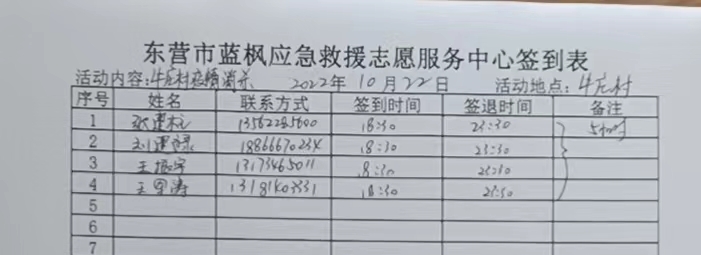 东营市蓝枫应急救援志愿服务中心签到表
活动内容:牛庄村疫情消杀 2022年10月22日 活动地点:牛庄村
序号 姓名 联系方式 签到时间 签退时间 备注
1 张建 13562285600 18:30 23:30 5小时
2 刘建禄 18866670234 18:30 23:30
3 王振宇 13173465011 18:30 23:30
4 王军涛 13181403331 18:30 23:30
5
6
7